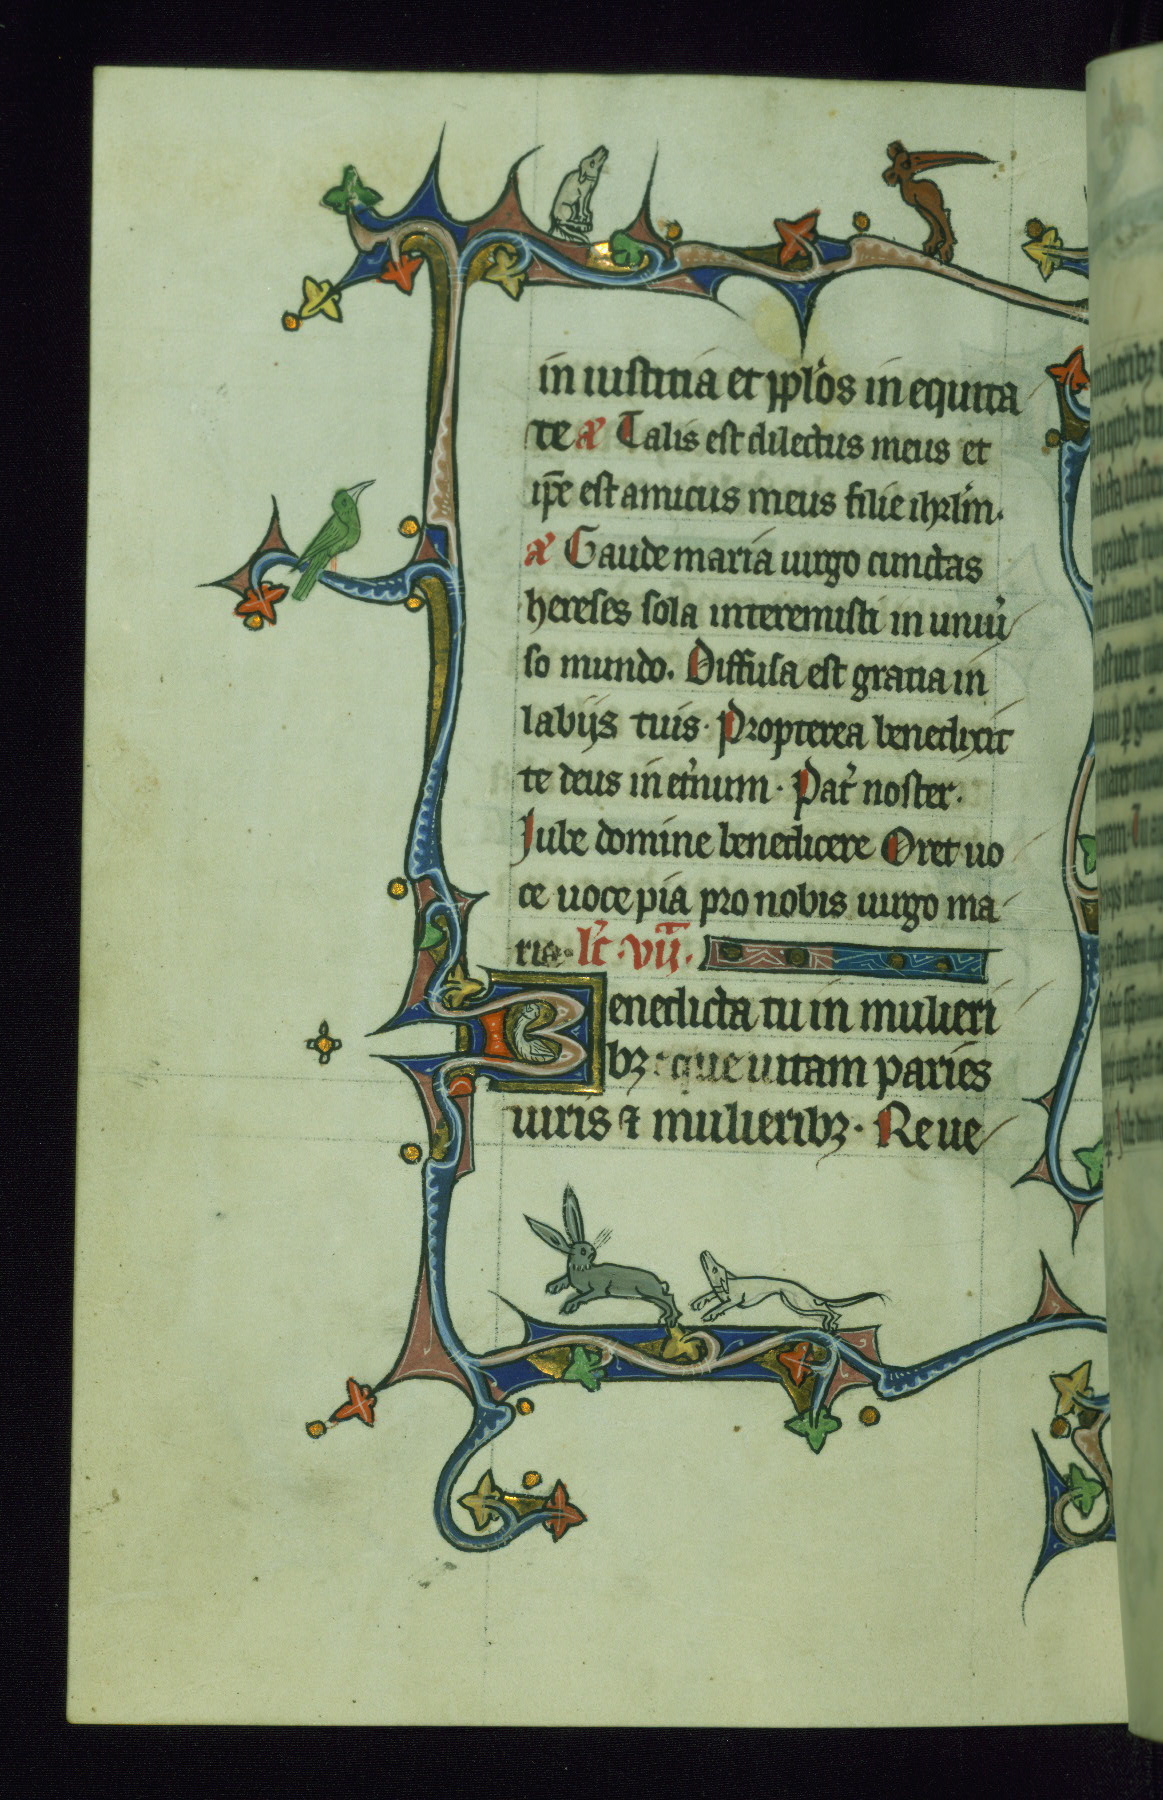 in iusticia et pplo̾s in equita
te aͬ Talis est dilectus meus et
ip̄e est amicus meus filie ihrl̄m.
aͬ Gaude maria uirgo cunctas
hereses sola interemisti in uniu̾
so mundo. Diffusa est gratia in
labijs tuis. Propterea benedixit
te deus in et̾num. Pat̾ noster.
Iube domine benedicere Oret uo
ce uoce pia pro nobis uirgo ma
ria. lc̄. vii.
Benedicta tu in mulieri
bꝫ: que uitam paries
uiris ⁊ mulieribꝫ. Reue